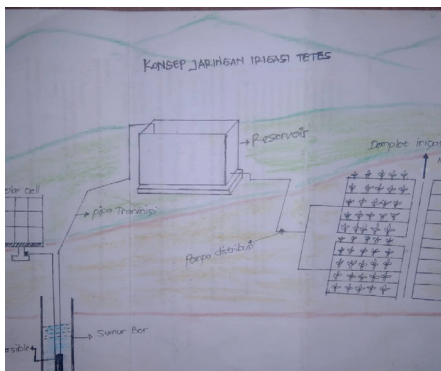 KONSEP JARINGAN IRIGASI TETES
Reservoir
Demplot iriga
olar cell
pipa Transmisi
Pompa distribusi
Sumur Bor
ersible